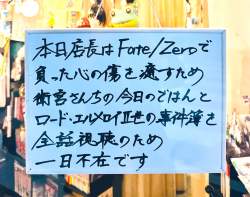 本日店長はFate/Zeroで
負った心の傷を癒すため
衛宮さんちの今日のごはんと
ロード・エルメロイⅡ世の事件簿を
全話視聴のため
一日不在です